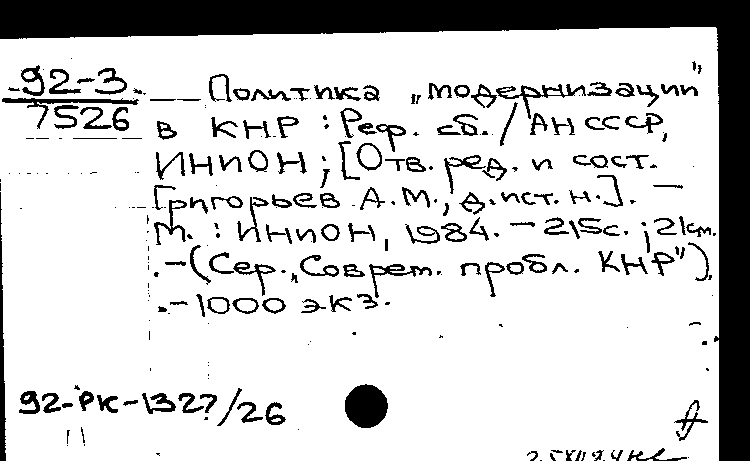 92-3
7526
Политика „модернизации"
в КНР : Реф. сб. / АН СССР,
ИНИОН ; [Отв. ред. и сост.
Григорьев А.М., д.ист.н.]. —
М. : ИНИОН, 1984. - 215с. ; 21см.
.-(Сер. „Соврем. пробл. КНР")
.-1000 экз.
92-РК-1327/26